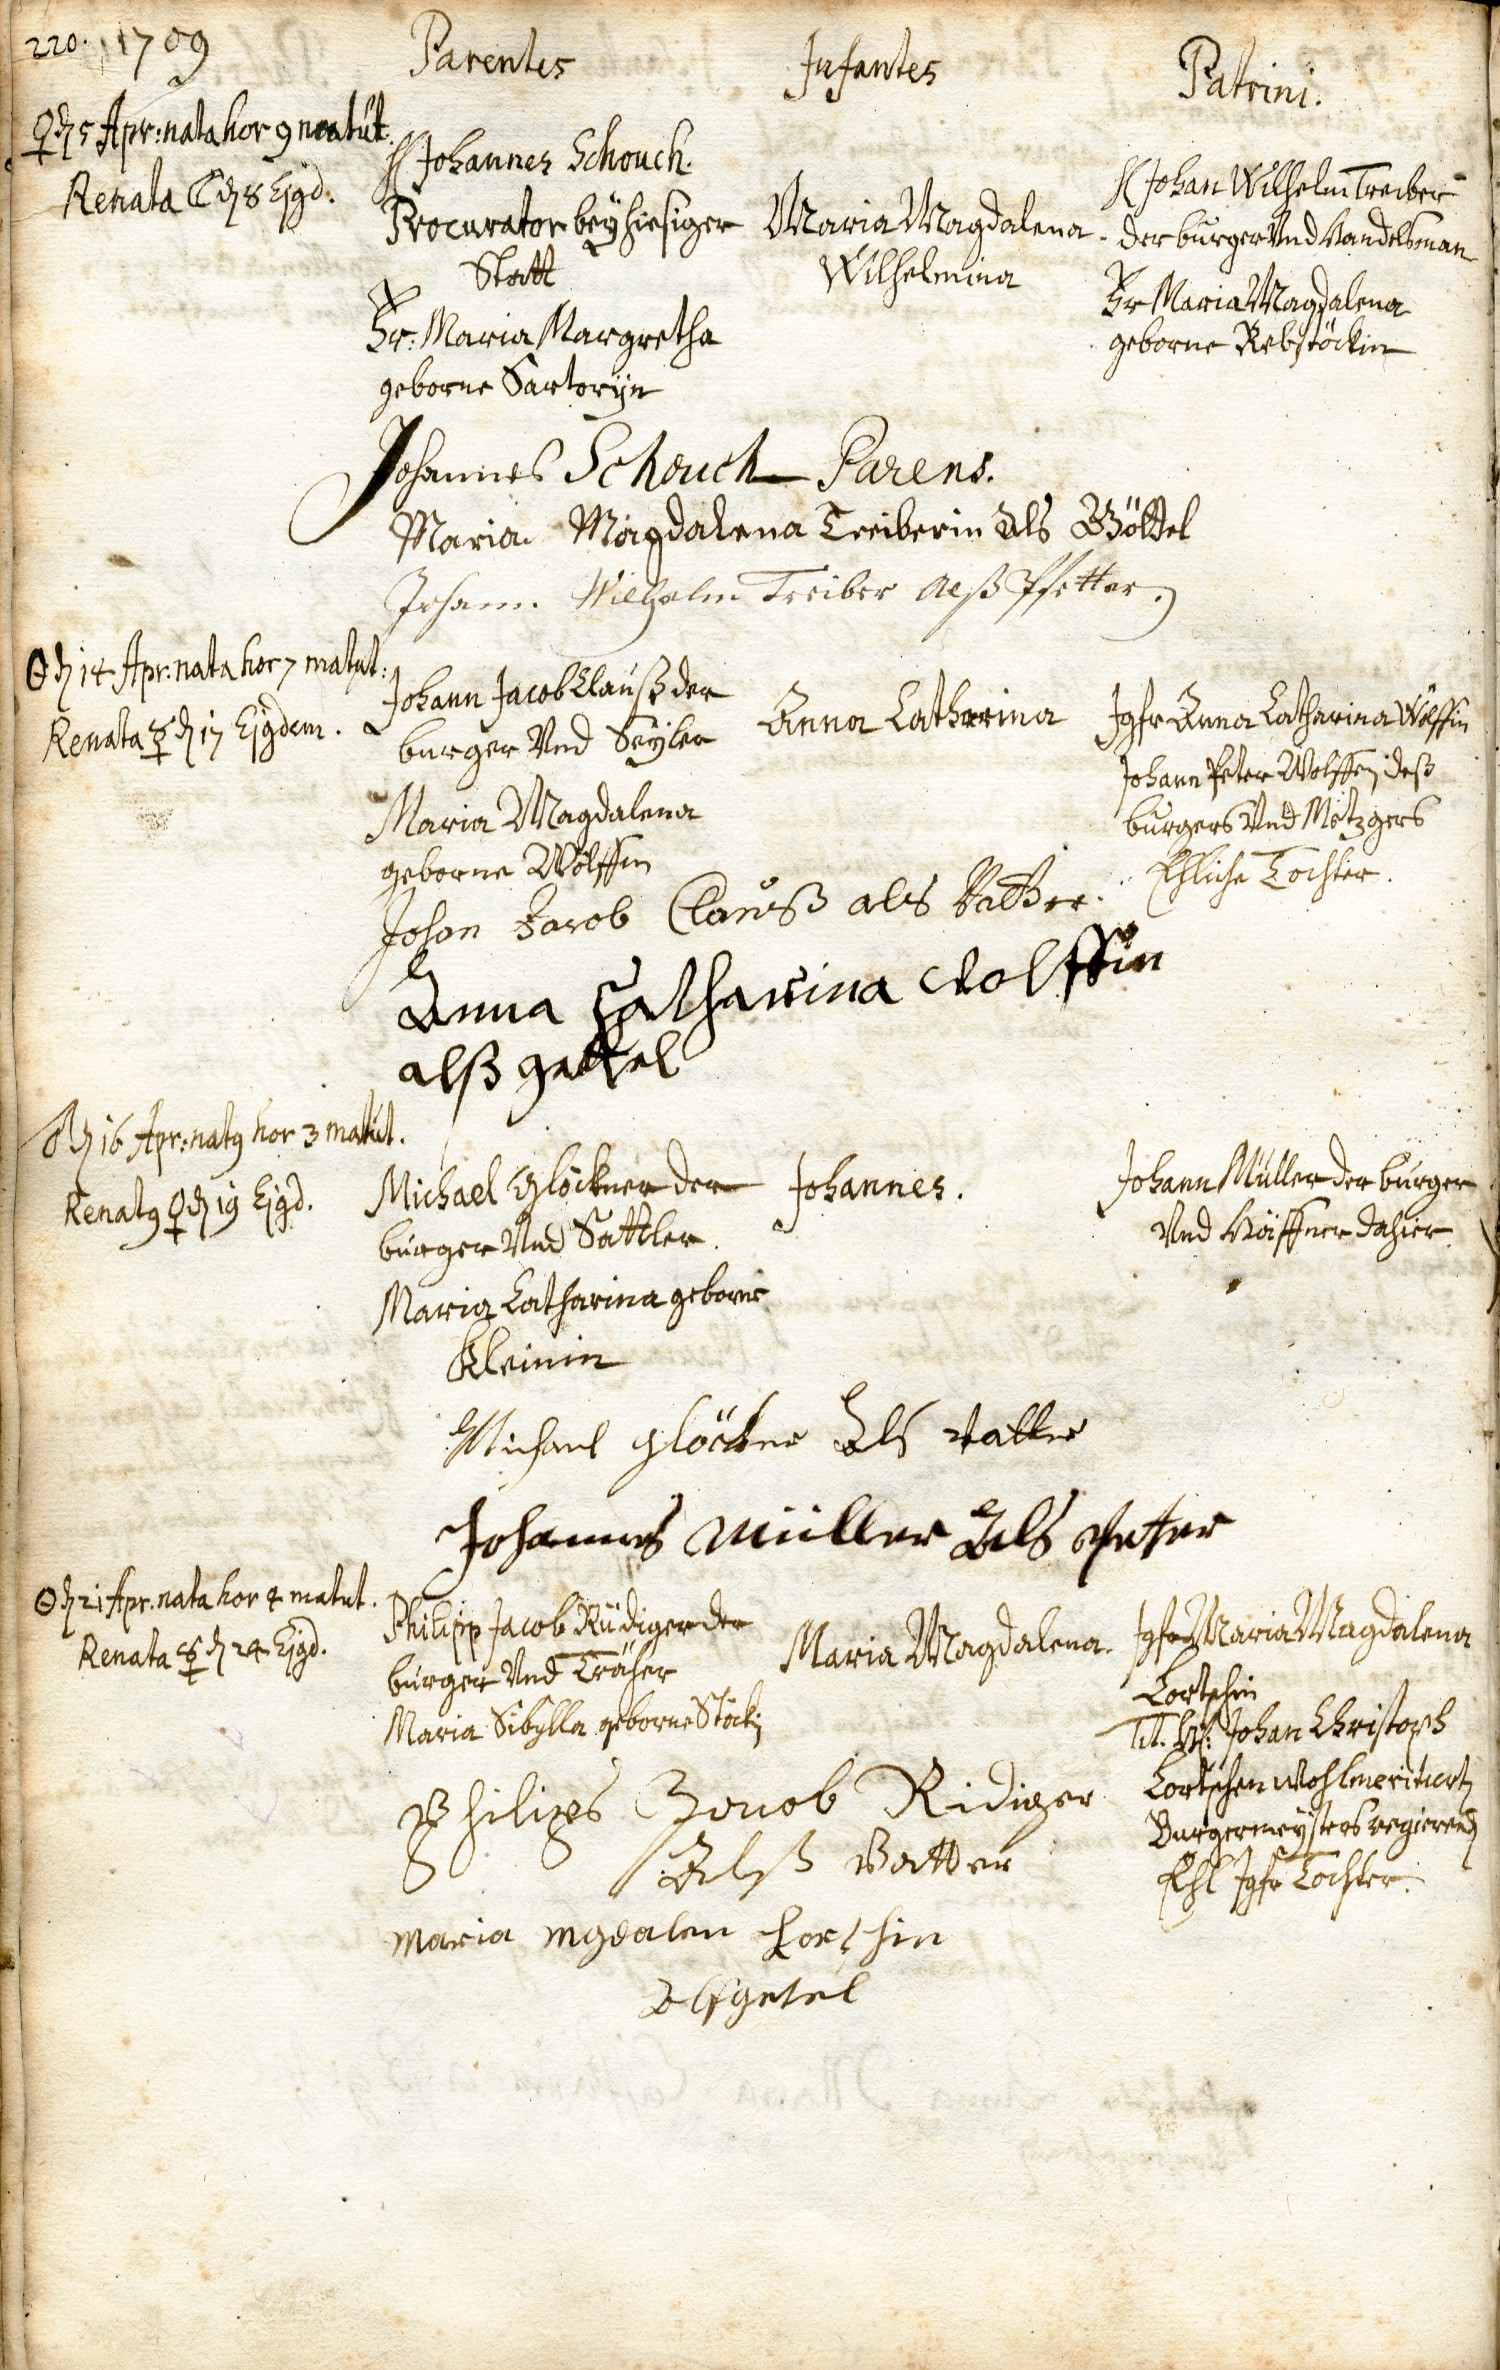 220. 1709
Parentes
Infantes
Patrini.
♀ d 5 Apr: nata hor 9 matut.
Renata ☾ d 8 Ejgd:
H Johannes Schouch.
Procurator bey hiesiger
Statt
Fr: Maria Margretha
geborne Sartoryn
Maria Magdalena
Wilhelmina
H Johan Wilhelm Treiber
der burger Vnd Handelsman
Fr Maria Magdalena
geborne Rebstöckin
Johannes Schouch Parens.
Maria Magdalena Treiberin Als Göttel
Johann Wilhelm Treiber Alß Pfetter
☉ d 14 Apr: nata hor 7 matut:
Renata ☿ d 17 Ejgdem.
Johann Jacob Clauß der
burger Vnd Seyler
Maria Magdalena
geborne Wolffin
Anna Catharina
Jgfr Anna Catharina Wölffin
Johann Peter Wolffen deß
burgers Vnd Metzgers
Ehliche Tochter.
Johan Jacob Clauß als Vatter.
Anna Catharina Wolffin
alß gettel
♂ d 16 Apr: nat9 hor 3 matut.
Renat9 ♀ d 19 Ejgd.
Michael Glöckner der
burger Vnd Sattler.
Maria Catharina geborne
Kleinin
Johannes.
Johann Müller der burger
Vnd Häffner dahier
Michael glöckner Als vatter
Johannes Müller Als Petter
☉ d 21 Apr. nata hor 4 matut.
Renata ☿ d 24 Ejgd.
Philipp Jacob Rüdiger der
burger Vnd Träher
Maria Sibylla geborne Stöckin
Maria Magdalena.
Jgfr Maria Magdalena
Lortschin
Tit. H: Johan Christoph
Lortschen Wohlmeritirten
Burgermeysters regierend
Ehl Jgfr Tochter.
Philips Jacob Ridiger
Alß Vatter
Maria mgdalen Lorschin
Als getel